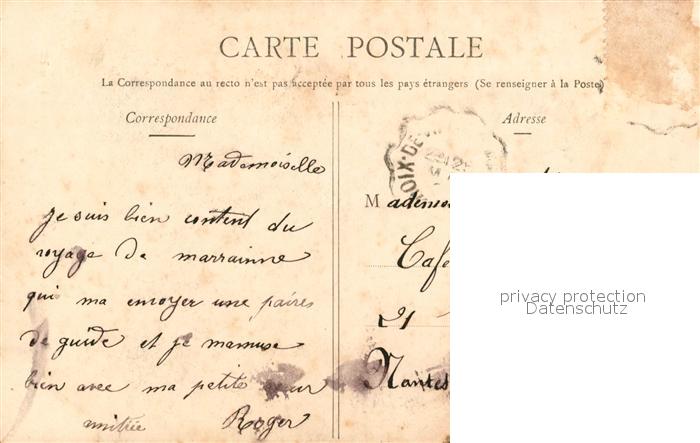 CARTE POSTALE
La Correspondance au recto n'est pas acceptée par tous les pays étrangers (Se renseigner à la Poste)
Correspondance
Mademoiselle
je suis bien content du
voyage de marrainne
qui ma envoyer une paires
de guide et je mamuse
bien avec ma petite sœur
amitiée Roger
Adresse
OIX-DE-
Mademo
Cafe
21
Nantes
privacy protection
Datenschutz